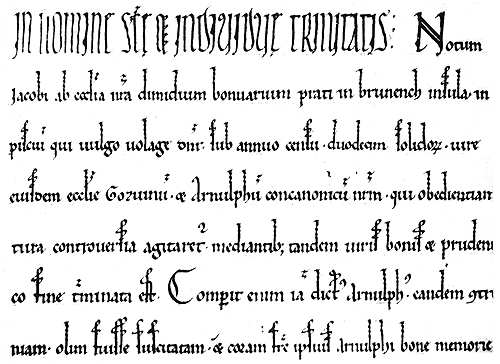 IN NOMINE SCĒ & INDIVIDUE TRINITATIS: Notum
Jacobi ab ecclia nr̄a dimidium bonuarium prati in brunench insula. in
qui uulgo uolage dnr̄. sub annuo censu. duodecim solidor̄. uire
eiusdem ecclie Gozuinū. & Arnulphū concanonicū nrm̄. qui obedientiam
tura controuersia agitaret'. mediantib; tandem uiris bonis & prudent
co fine t'minata est. Comperit enim iā dict' Arnulph' eandem 9tr
uiam. olim fuisse suscitatam. & coram fr̄e ipsius Arnulphi bone memorie